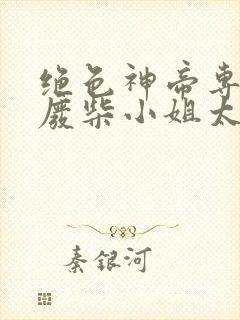 绝色神帝专
废柴小姐太
秦银河